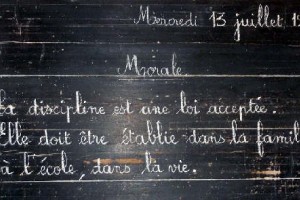 Mercredi 13 juillet 1
Morale.
La discipline est une loi acceptée.
Elle doit être établie dans la famil
à l'école, dans la vie.